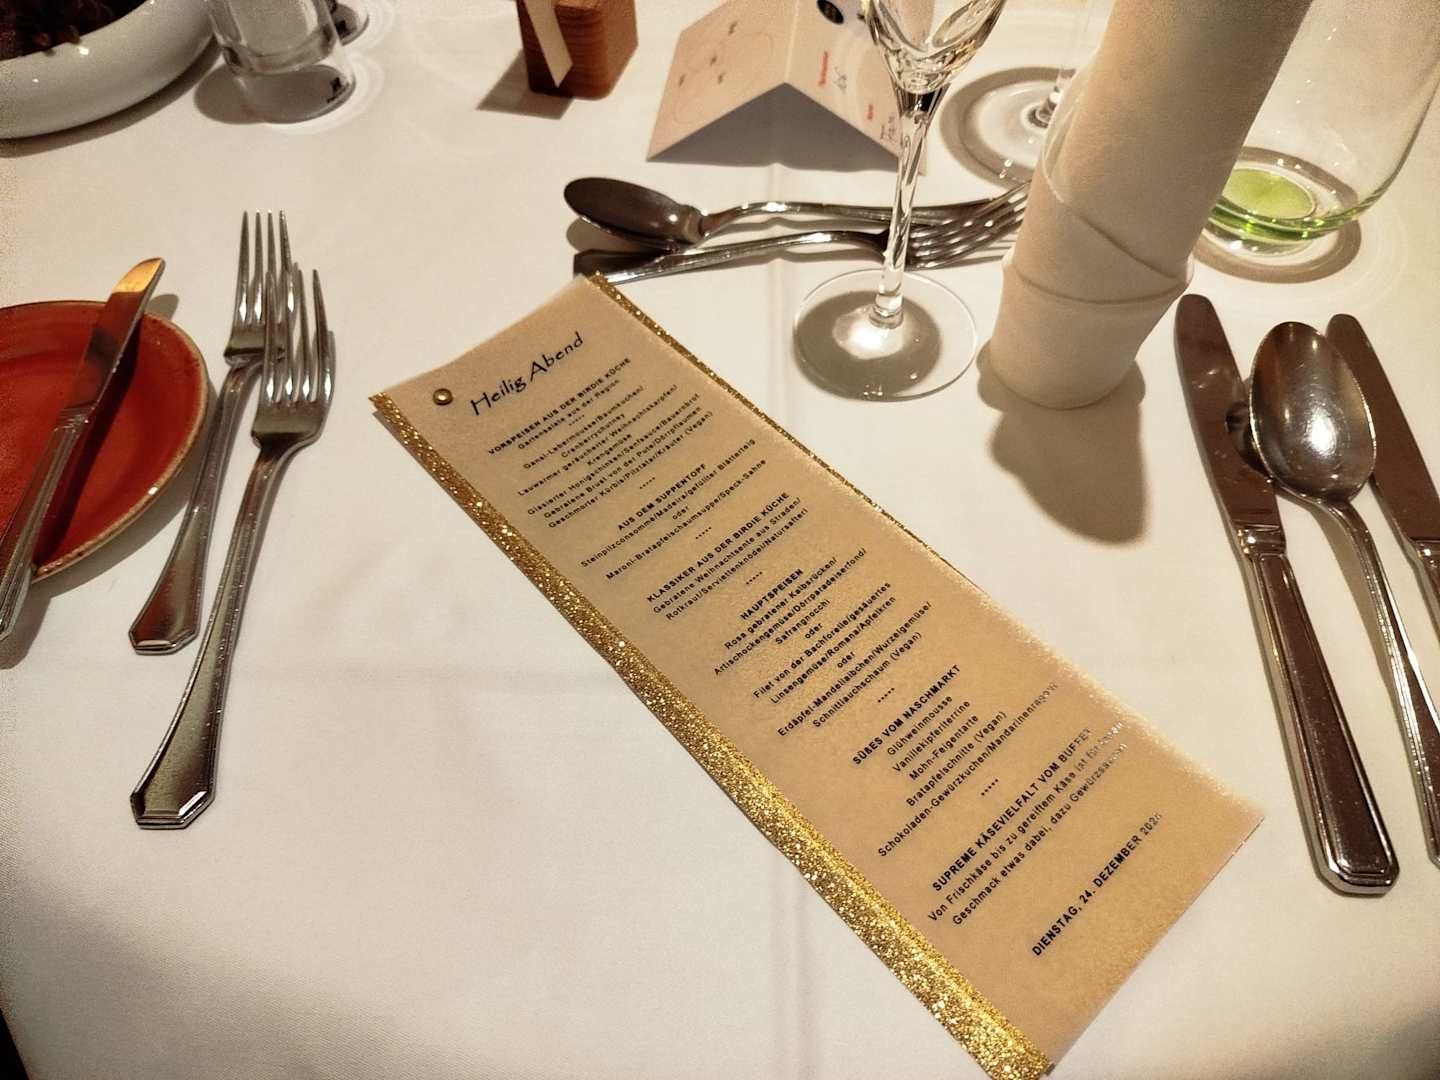 Heilig Abend
VORSPEISEN AUS DER BIRDIE KÜCHE
Gartensalate aus der Region
*****
Gansl-Lebermousse/Baumkuchen/
Cranberrychutney
Lauwarmer geräucherter Weihnachtskarpfen/
Krengemüse
Glasierter Honigschinken/Senfsauce/Bauernbrot
Gebratene Brust von der Pute/Dörrpflaumen
Geschmorter Kürbis/Pilztatar/Kräuter (Vegan)
*****
AUS DEM SUPPENTOPF
Steinpilzconsommé/Madeira/gefüllter Blätterteig
oder
Maroni-Bratapfelschaumsuppe/Speck-Sahne
*****
KLASSIKER AUS DER BIRDIE KÜCHE
Gebratene Weihnachtsente aus Straden/
Rotkraut/Serviettenknödel/Natursafterl
*****
HAUPTSPEISEN
Rosa gebratener Kalbsrücken/
Artischockengemüse/Dörrparadeiserfond/
Safrangnocchi
oder
Filet von der Bachforelle/gesäuertes
Linsengemüse/Romana/Apfelkren
oder
Erdäpfel-Mandellaibchen/Wurzelgemüse/
Schnittlauchschaum (Vegan)
*****
SÜßES VOM NASCHMARKT
Glühweinmousse
Vanillekipferlterrine
Mohn-Feigentarte
Bratapfelschnitte (Vegan)
Schokoladen-Gewürzkuchen/Mandarinenragout
*****
SUPREME KÄSEVIELFALT VOM BUFFET
Von Frischkäse bis zu gereiftem Käse ist für jeden
Geschmack etwas dabei, dazu Gewürzsaucen
DIENSTAG, 24. DEZEMBER